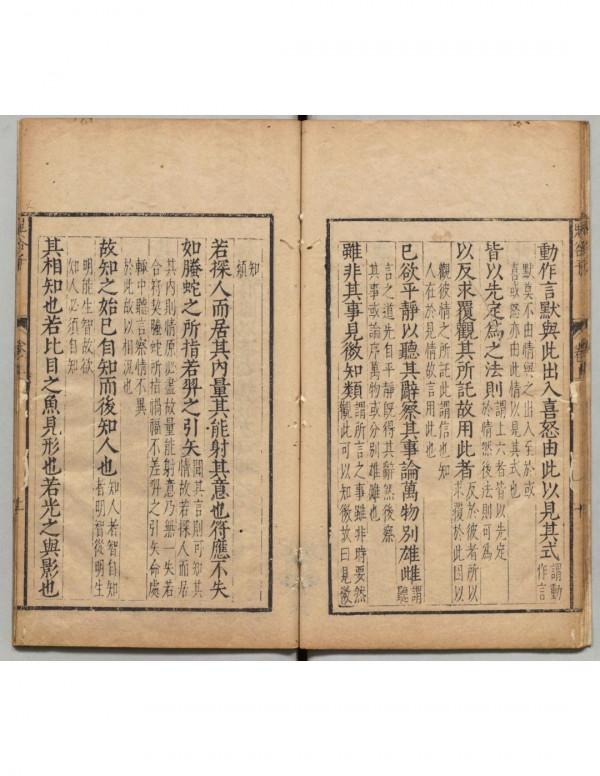 動作言默與此出入喜怒由此以見其式
謂動
作言
默莫不由情與之出入至於或
喜或怒亦由此情以見其式也
皆以先定為之法則
謂上六者皆以先定
於情然後法則可為
以反求覆觀其所託故用此者
反於彼者所以
求覆於此因以
觀彼情之所託此謂信也知
人在於見情故言用此也
已欲平靜以聽其辭察其事論萬物別雄雌
謂
聽
言之道先自平靜既得其辭然後察
其事或論序萬物或分別雄雌也
雖非其事見微知類
謂所言之事雖非時要然
觀此可以知微故曰見微
知
類
若探人而居其內量其能射其意也符應不失
如螣蛇之所指若羿之引矢
聞其言則可知其
情故若探人而居
其內則情原必盡故量能射意乃無一失若
合符契螣蛇所指禍福不差羿之引矢命處
輒中聽言察情不異
於此故以相况也
故知之始已自知而後知人也
知人者智自知
者明智從明生
明能生智故欲
知人必須自知
其相知也若比目之魚見形也若光之與影也